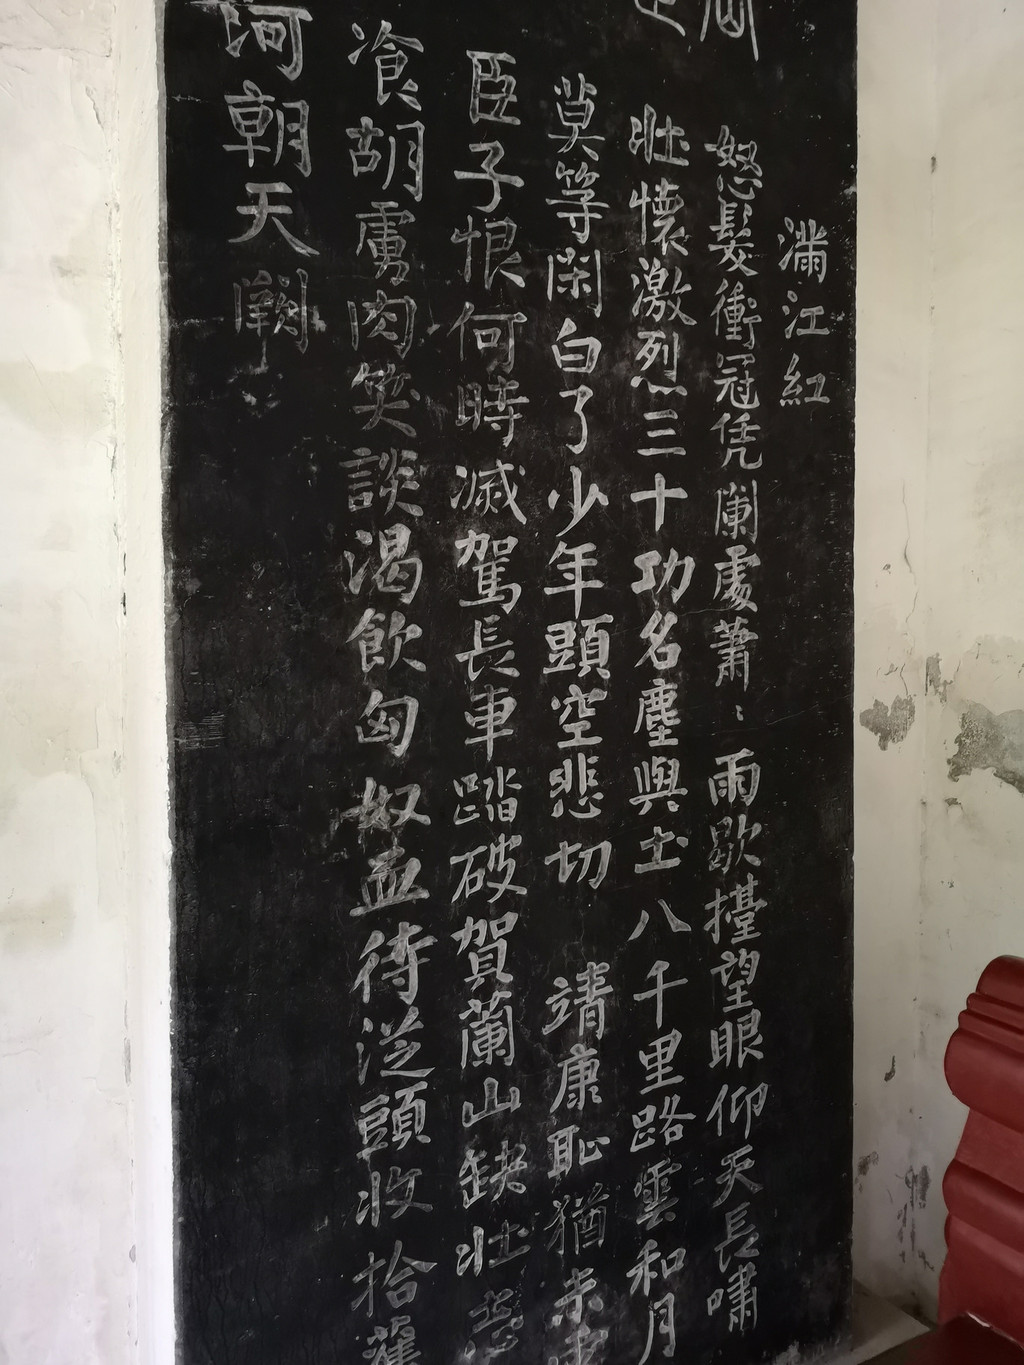 滿江紅
怒髮衝冠凭闌處蕭：雨歇擡望眼仰天長嘯
壯懷激烈三十功名塵與土八千里路雲和月
莫等閑白了少年頭空悲切靖康恥猶未
臣子恨何時滅駕長車踏破賀蘭山缺壯志
飡胡虜肉笑談渴飲匈奴血待從頭收拾舊
河朝天闕